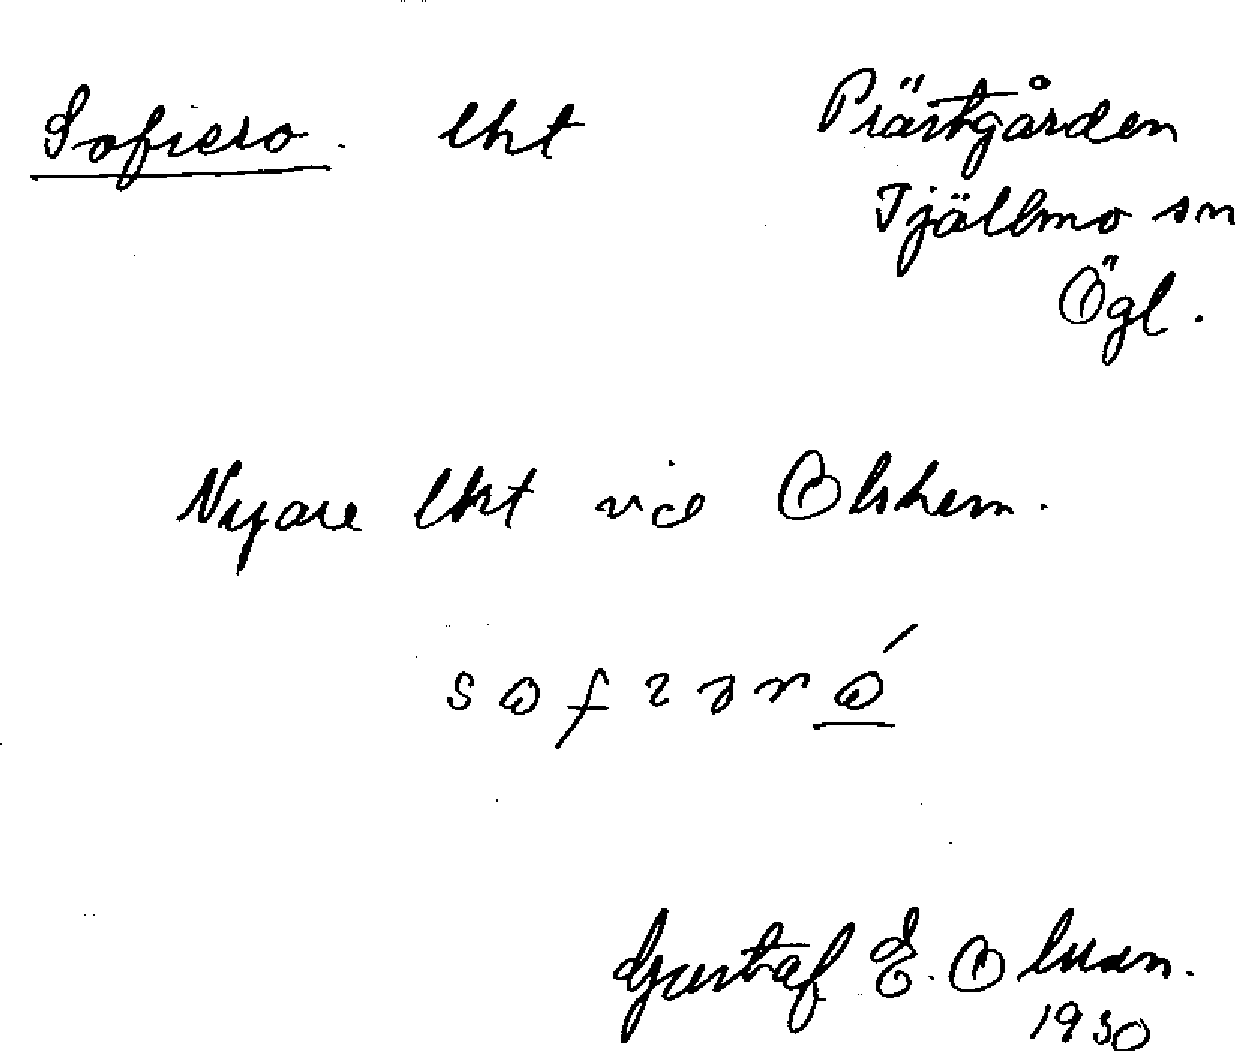 Sofiero. lht Prästgården
Tjällmo sn
Ögl.
Nyare lht vid Olshem.
sofɩəró
Gustaf E. Olsson.
1930